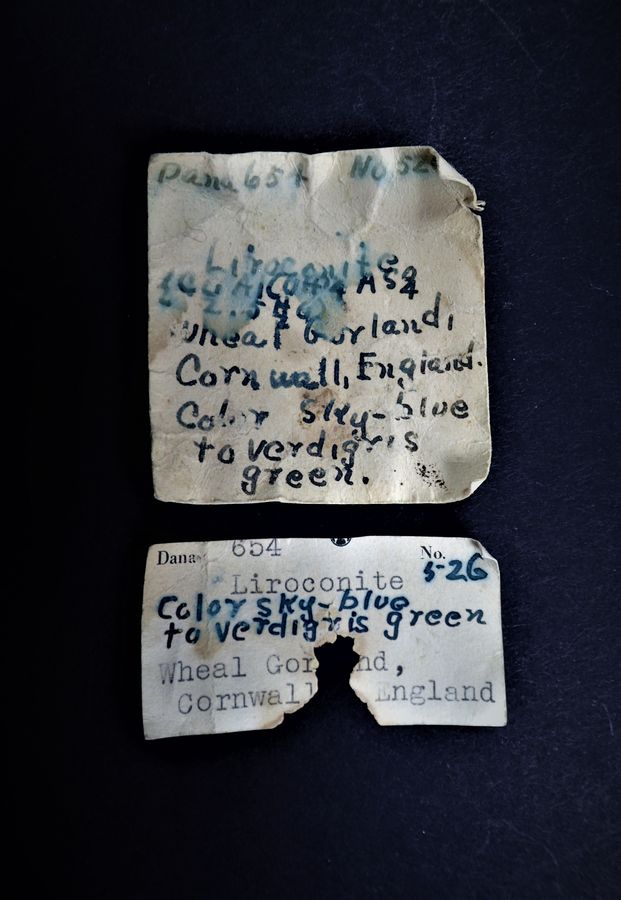 Dana 654 No. 52
Liroconite
Wheal Gorland,
Cornwall, England.
Color sky-blue
to verdigris
green.
Dana 654 No. 526
Liroconite
Color sky-blue
to verdigris green
Wheal Gor nd,
Cornwall England